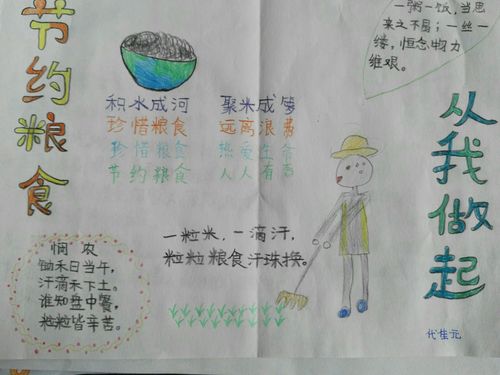 节约粮食
一粥一饭,当思
来之不易;一丝一
缕,恒念物力
维艰。
积水成河 聚米成箩
珍惜粮食 远离浪费
珍惜粮食 热爱生命
节约粮食 人人有责
从我做起
一粒米,一滴汗,
粒粒粮食汗珠换。
悯农
锄禾日当午,
汗滴禾下土。
谁知盘中餐,
粒粒皆辛苦。